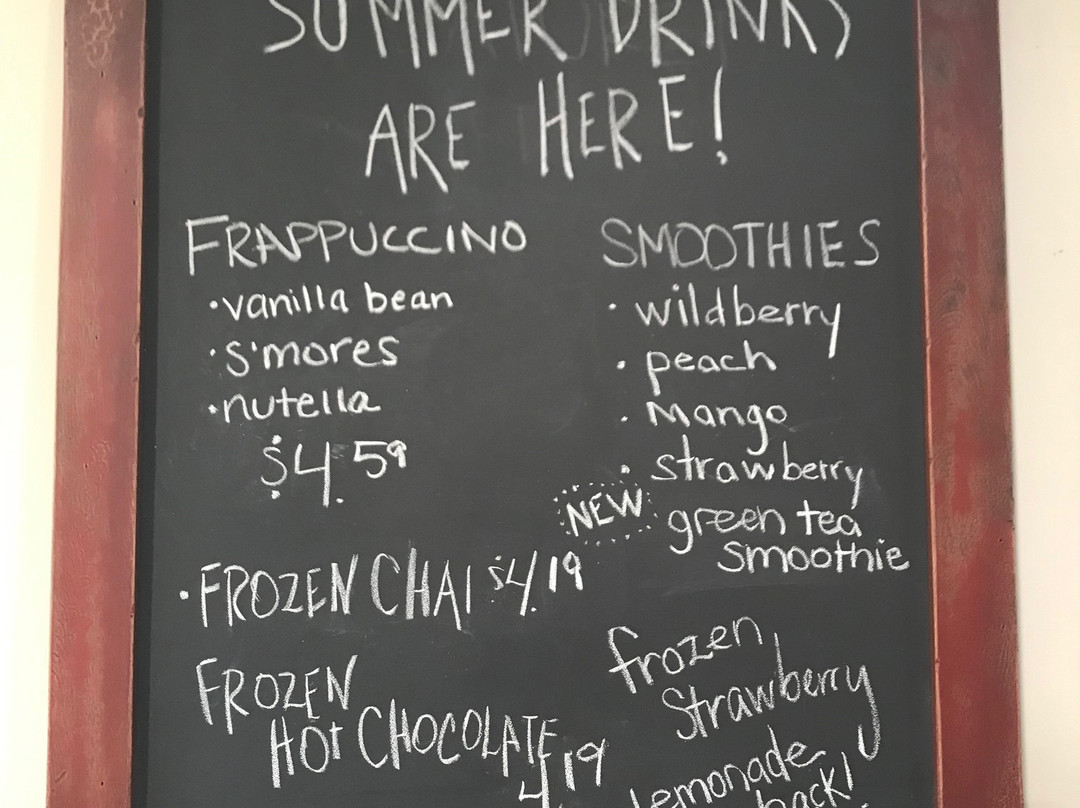 SUMMER DRINKS
ARE HERE!
FRAPPUCCINO
• vanilla bean
• s'mores
• nutella
$4.59
SMOOTHIES
• wildberry
• peach
• Mango
• strawberry
NEW green tea
smoothie
• FROZEN CHAI $4.19
FROZEN
HOT CHOCOLATE
4.19
frozen
Strawberry
lemonade
back!